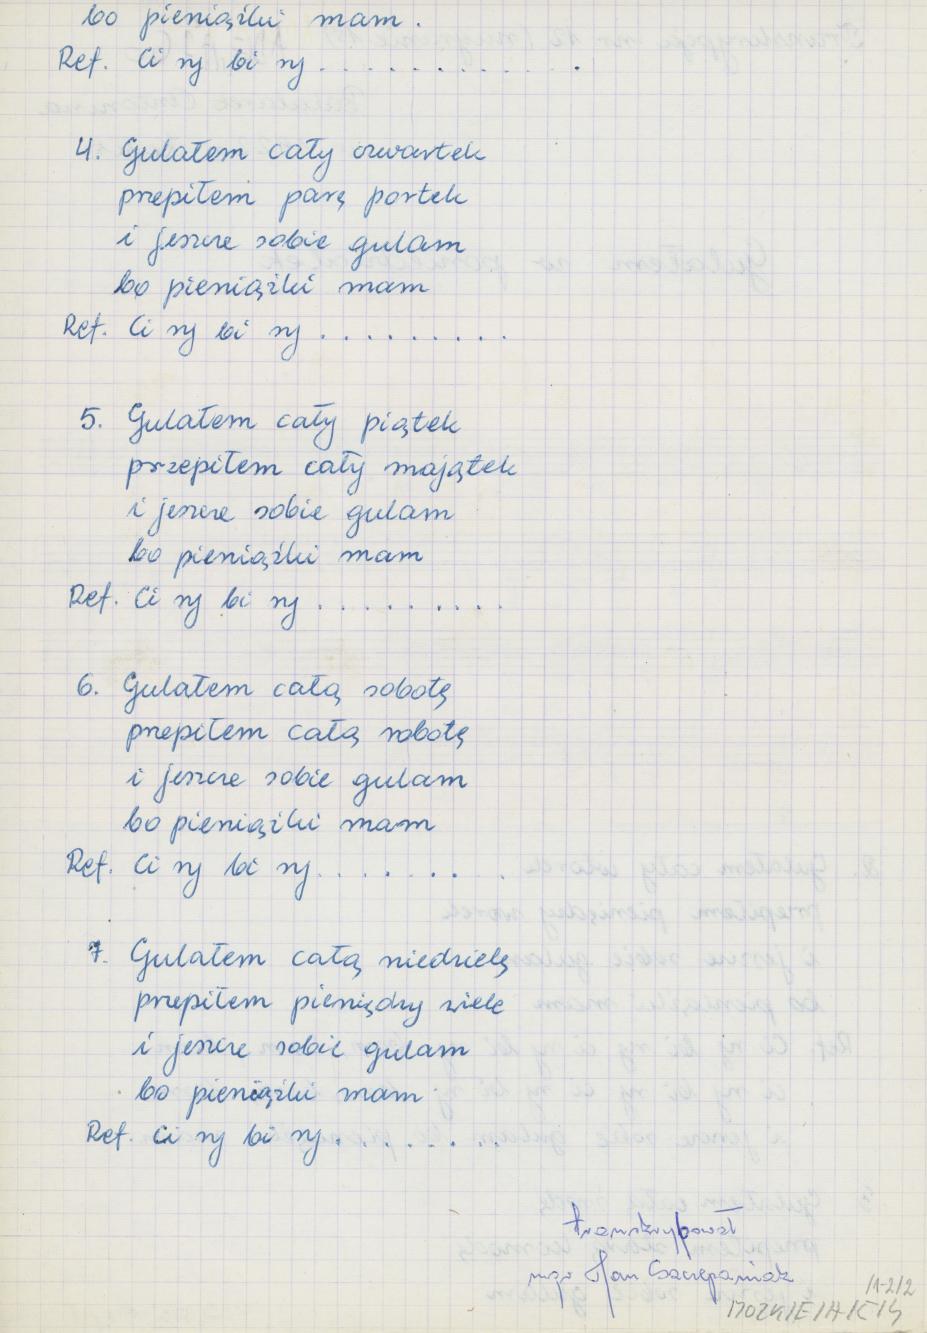 bo pieniążki mam.
Ref. Ci ry bi ry . . . . . . . . . . . .
4. Gulałem cały czwartek
przepiłem parę portek
i jeszcze sobie gulam
bo pieniążki mam
Ref. Ci ry bi ry . . . . . . . . .
5. Gulałem cały piątek
przepiłem cały majątek
i jeszcze sobie gulam
bo pieniążki mam
Ref. Ci ry bi ry . . . . . . . . .
6. Gulałem całą sobotę
przepiłem całą robotę
i jeszcze sobie gulam
bo pieniążki mam
Ref. Ci ry bi ry. . . . . . . .
7. Gulałem całą niedzielę
przepiłem pieniędzy wiele
i jeszcze sobie gulam
bo pieniążki mam
Ref. Ci ry bi ry. . . . . . .
transkrybował
mgr Jan Szczepaniak